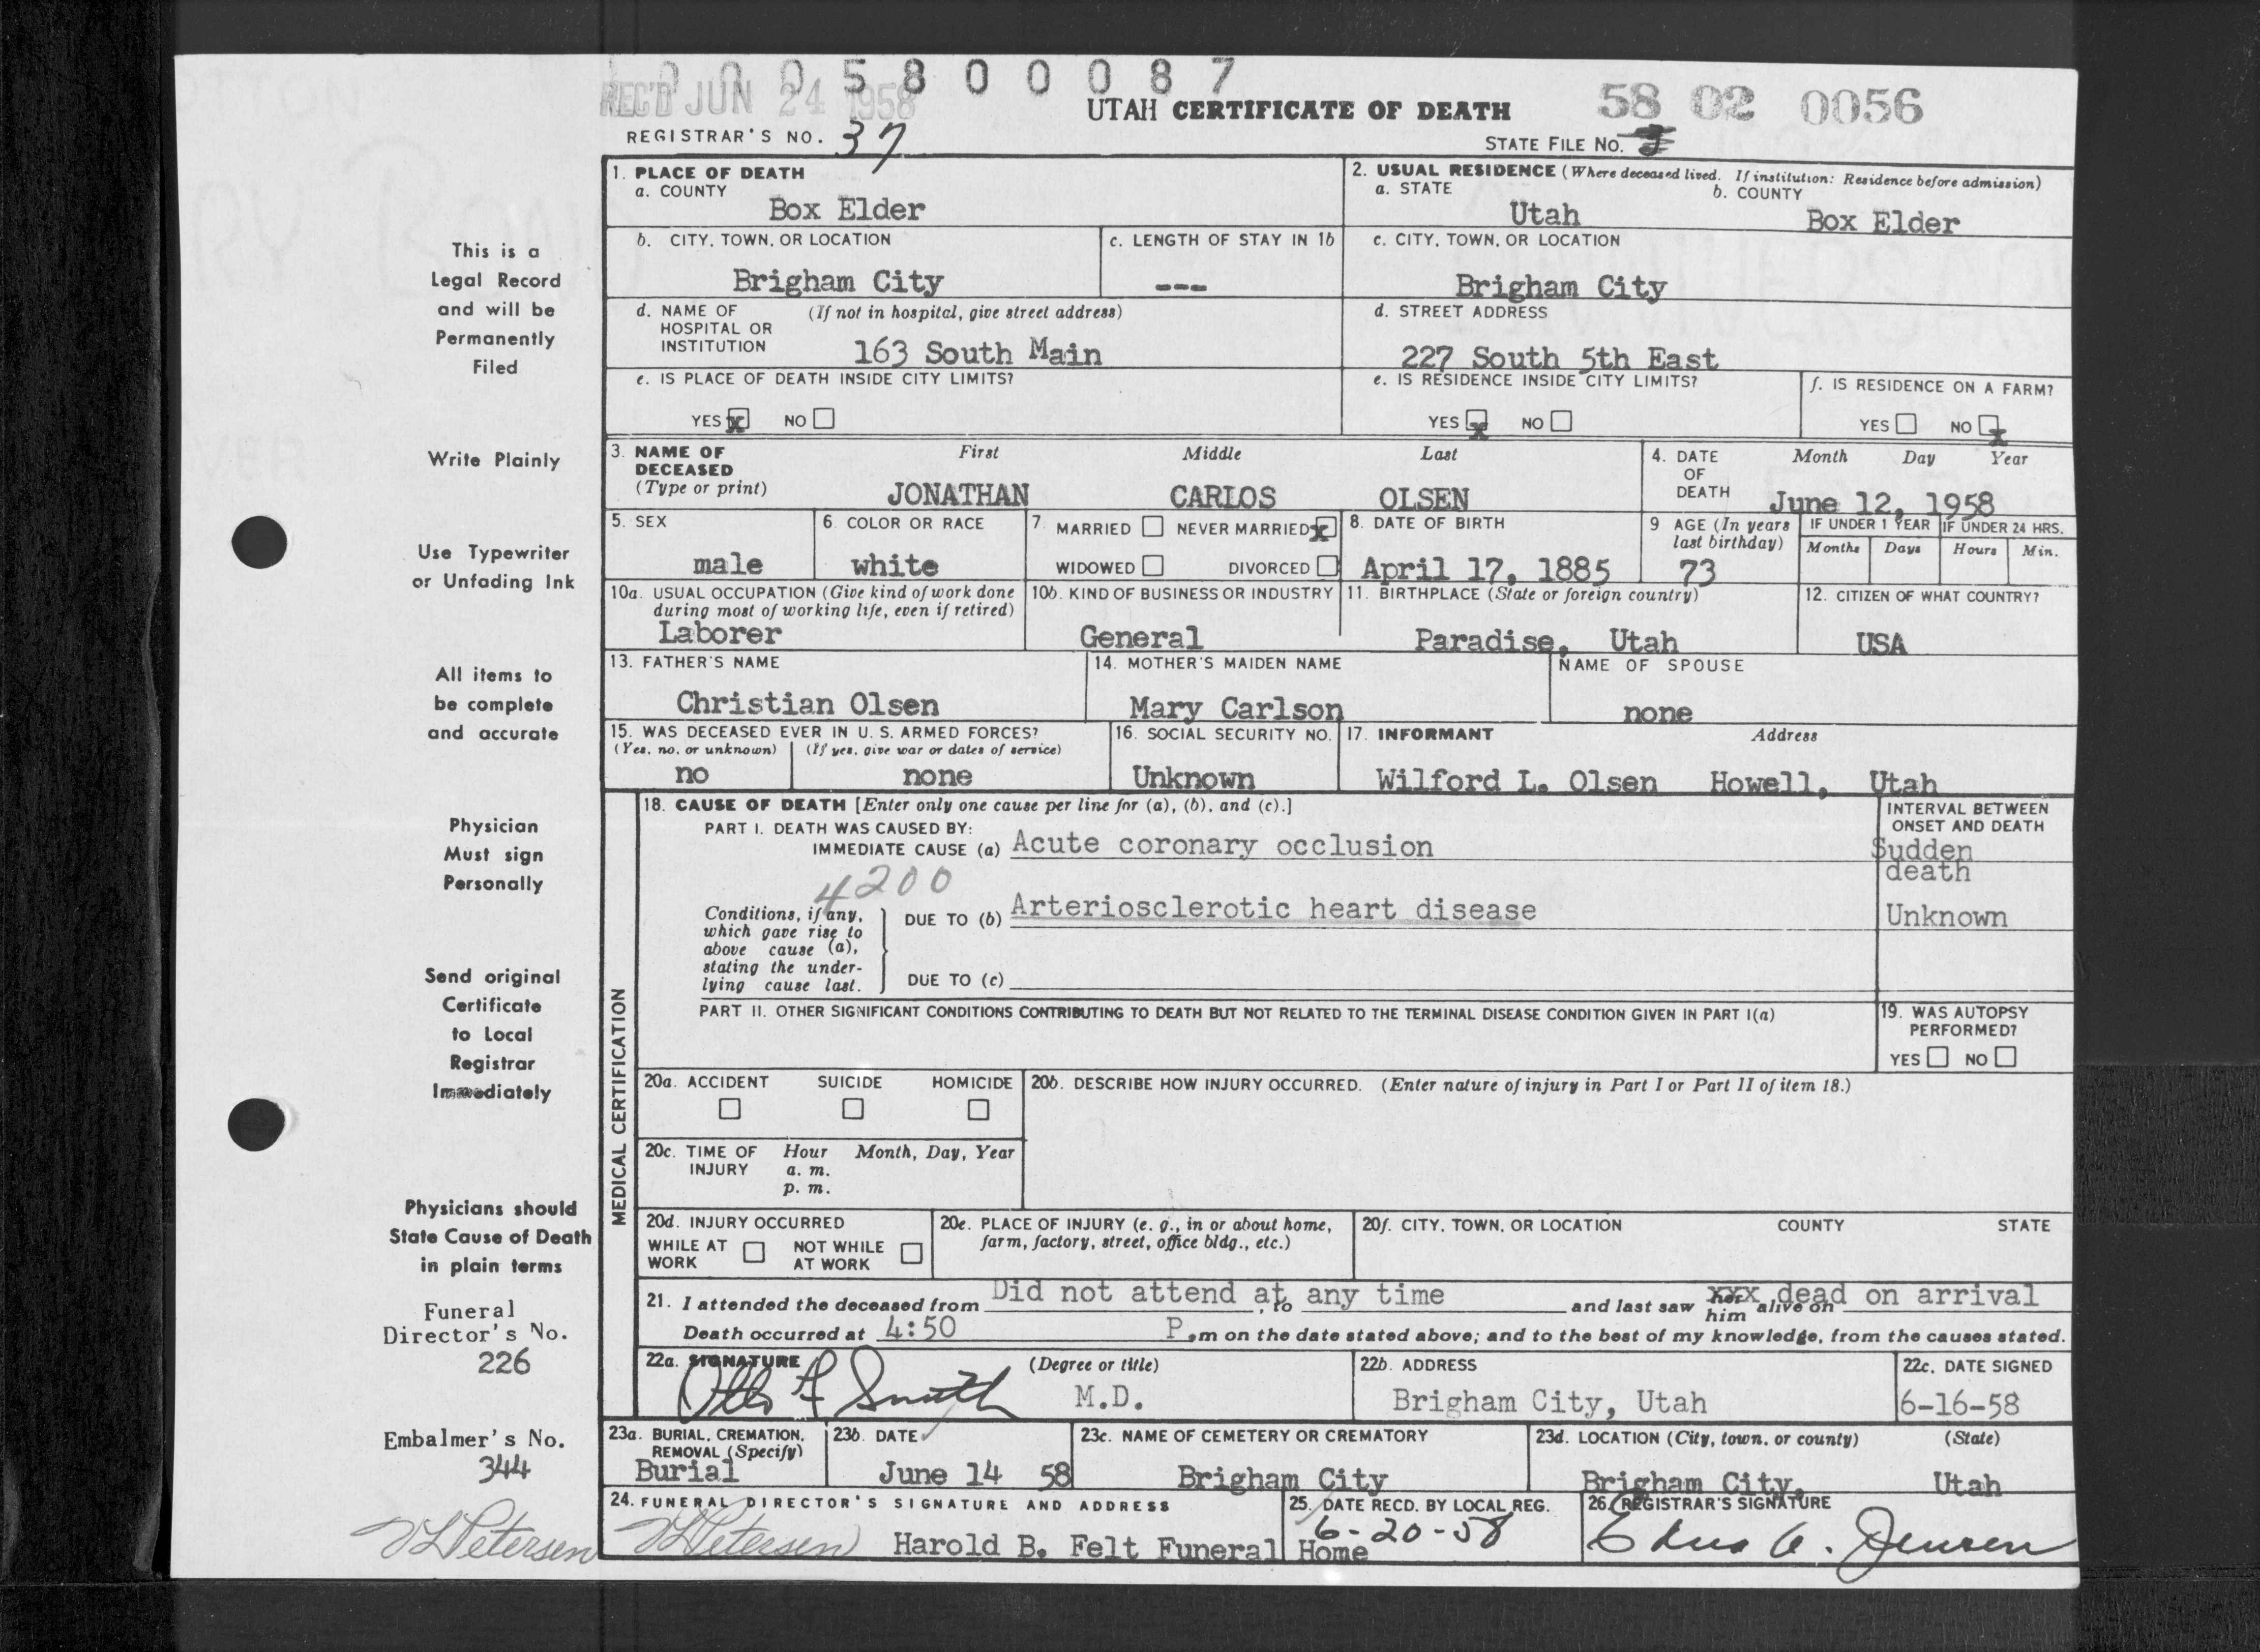 0 0 0 5 8 0 0 0 8 7
REC'D JUN 24 1958
UTAH CERTIFICATE OF DEATH
58 02 0056
REGISTRAR'S NO. 37
STATE FILE NO.
1. PLACE OF DEATH
a. COUNTY
Box Elder
2. USUAL RESIDENCE (Where deceased lived. If institution: Residence before admission)
a. STATE b. COUNTY
Utah Box Elder
b. CITY, TOWN, OR LOCATION
Brigham City
c. LENGTH OF STAY IN 1b
---
c. CITY, TOWN, OR LOCATION
Brigham City
d. NAME OF (If not in hospital, give street address)
HOSPITAL OR
INSTITUTION 163 South Main
d. STREET ADDRESS
227 South 5th East
e. IS PLACE OF DEATH INSIDE CITY LIMITS?
YES x NO
e. IS RESIDENCE INSIDE CITY LIMITS?
YES x NO
f. IS RESIDENCE ON A FARM?
YES NO x
3. NAME OF DECEASED (Type or print)
First Middle Last
JONATHAN CARLOS OLSEN
4. DATE OF DEATH
Month Day Year
June 12, 1958
5. SEX
male
6. COLOR OR RACE
white
7. MARRIED NEVER MARRIED x
WIDOWED DIVORCED
8. DATE OF BIRTH
April 17, 1885
9 AGE (In years last birthday)
73
IF UNDER 1 YEAR IF UNDER 24 HRS.
Months Days Hours Min.
10a. USUAL OCCUPATION (Give kind of work done
during most of working life, even if retired)
Laborer
10b. KIND OF BUSINESS OR INDUSTRY
General
11. BIRTHPLACE (State or foreign country)
Paradise, Utah
12. CITIZEN OF WHAT COUNTRY?
USA
13. FATHER'S NAME
Christian Olsen
14. MOTHER'S MAIDEN NAME
Mary Carlson
NAME OF SPOUSE
none
15. WAS DECEASED EVER IN U. S. ARMED FORCES?
(Yes, no, or unknown) (If yes, give war or dates of service)
no none
16. SOCIAL SECURITY NO.
Unknown
17. INFORMANT Address
Wilford L. Olsen Howell, Utah
MEDICAL CERTIFICATION
18. CAUSE OF DEATH [Enter only one cause per line for (a), (b), and (c).]
PART I. DEATH WAS CAUSED BY:
IMMEDIATE CAUSE (a) Acute coronary occlusion
INTERVAL BETWEEN
ONSET AND DEATH
Sudden
death
4200
Conditions, if any,
which gave rise to
above cause (a),
stating the under-
lying cause last.
DUE TO (b) Arteriosclerotic heart disease
Unknown
DUE TO (c)
PART II. OTHER SIGNIFICANT CONDITIONS CONTRIBUTING TO DEATH BUT NOT RELATED TO THE TERMINAL DISEASE CONDITION GIVEN IN PART I(a)
19. WAS AUTOPSY
PERFORMED?
YES NO
20a. ACCIDENT SUICIDE HOMICIDE
20b. DESCRIBE HOW INJURY OCCURRED. (Enter nature of injury in Part I or Part II of item 18.)
20c. TIME OF Hour Month, Day, Year
INJURY a. m.
p. m.
20d. INJURY OCCURRED
WHILE AT WORK NOT WHILE AT WORK
20e. PLACE OF INJURY (e. g., in or about home,
farm, factory, street, office bldg., etc.)
20f. CITY, TOWN, OR LOCATION COUNTY STATE
21. I attended the deceased from Did not attend at any time, to and last saw her xxx him alive on dead on arrival
Death occurred at 4:50 P.m on the date stated above; and to the best of my knowledge, from the causes stated.
22a. SIGNATURE (Degree or title)
Otto F Smith M.D.
22b. ADDRESS
Brigham City, Utah
22c. DATE SIGNED
6-16-58
23a. BURIAL, CREMATION,
REMOVAL (Specify)
Burial
23b. DATE
June 14 58
23c. NAME OF CEMETERY OR CREMATORY
Brigham City
23d. LOCATION (City, town, or county) (State)
Brigham City, Utah
24. FUNERAL DIRECTOR'S SIGNATURE AND ADDRESS
Petersen Harold B. Felt Funeral Home
25. DATE RECD. BY LOCAL REG.
6-20-58
26. REGISTRAR'S SIGNATURE
Jensen
This is a
Legal Record
and will be
Permanently
Filed
Write Plainly
Use Typewriter
or Unfading Ink
All items to
be complete
and accurate
Physician
Must sign
Personally
Send original
Certificate
to Local
Registrar
Immediately
Physicians should
State Cause of Death
in plain terms
Funeral
Director's No.
226
Embalmer's No.
344
Petersen